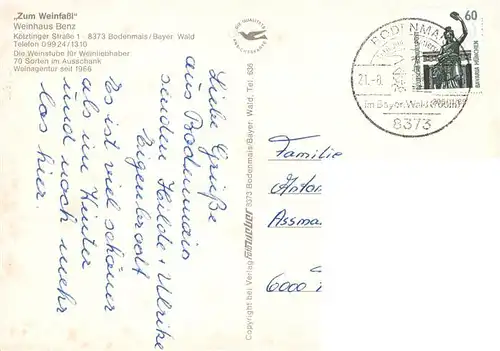 „Zum Weinfaßl"
Weinhaus Benz
Kötztinger Straße 1 · 8373 Bodenmais/Bayer. Wald
Telefon 09924/1310
Die Weinstube für Weinliebhaber
70 Sorten im Ausschank
Weinagentur seit 1966
Liebe Grüße
aus Bodenmais
senden Hilde + Ulrike
Eigenbrodt
Es ist viel schöner
als im Winter
und noch mehr
los hier.
Copyright bei Verlag
8373 Bodenmais/Bayer. Wald, Tel. 636
BODENMAIS
21.-8.
im Bayer. Wald
8373
60
BAVARIA MÜNCHEN
Familie
Anton
Assma
6000